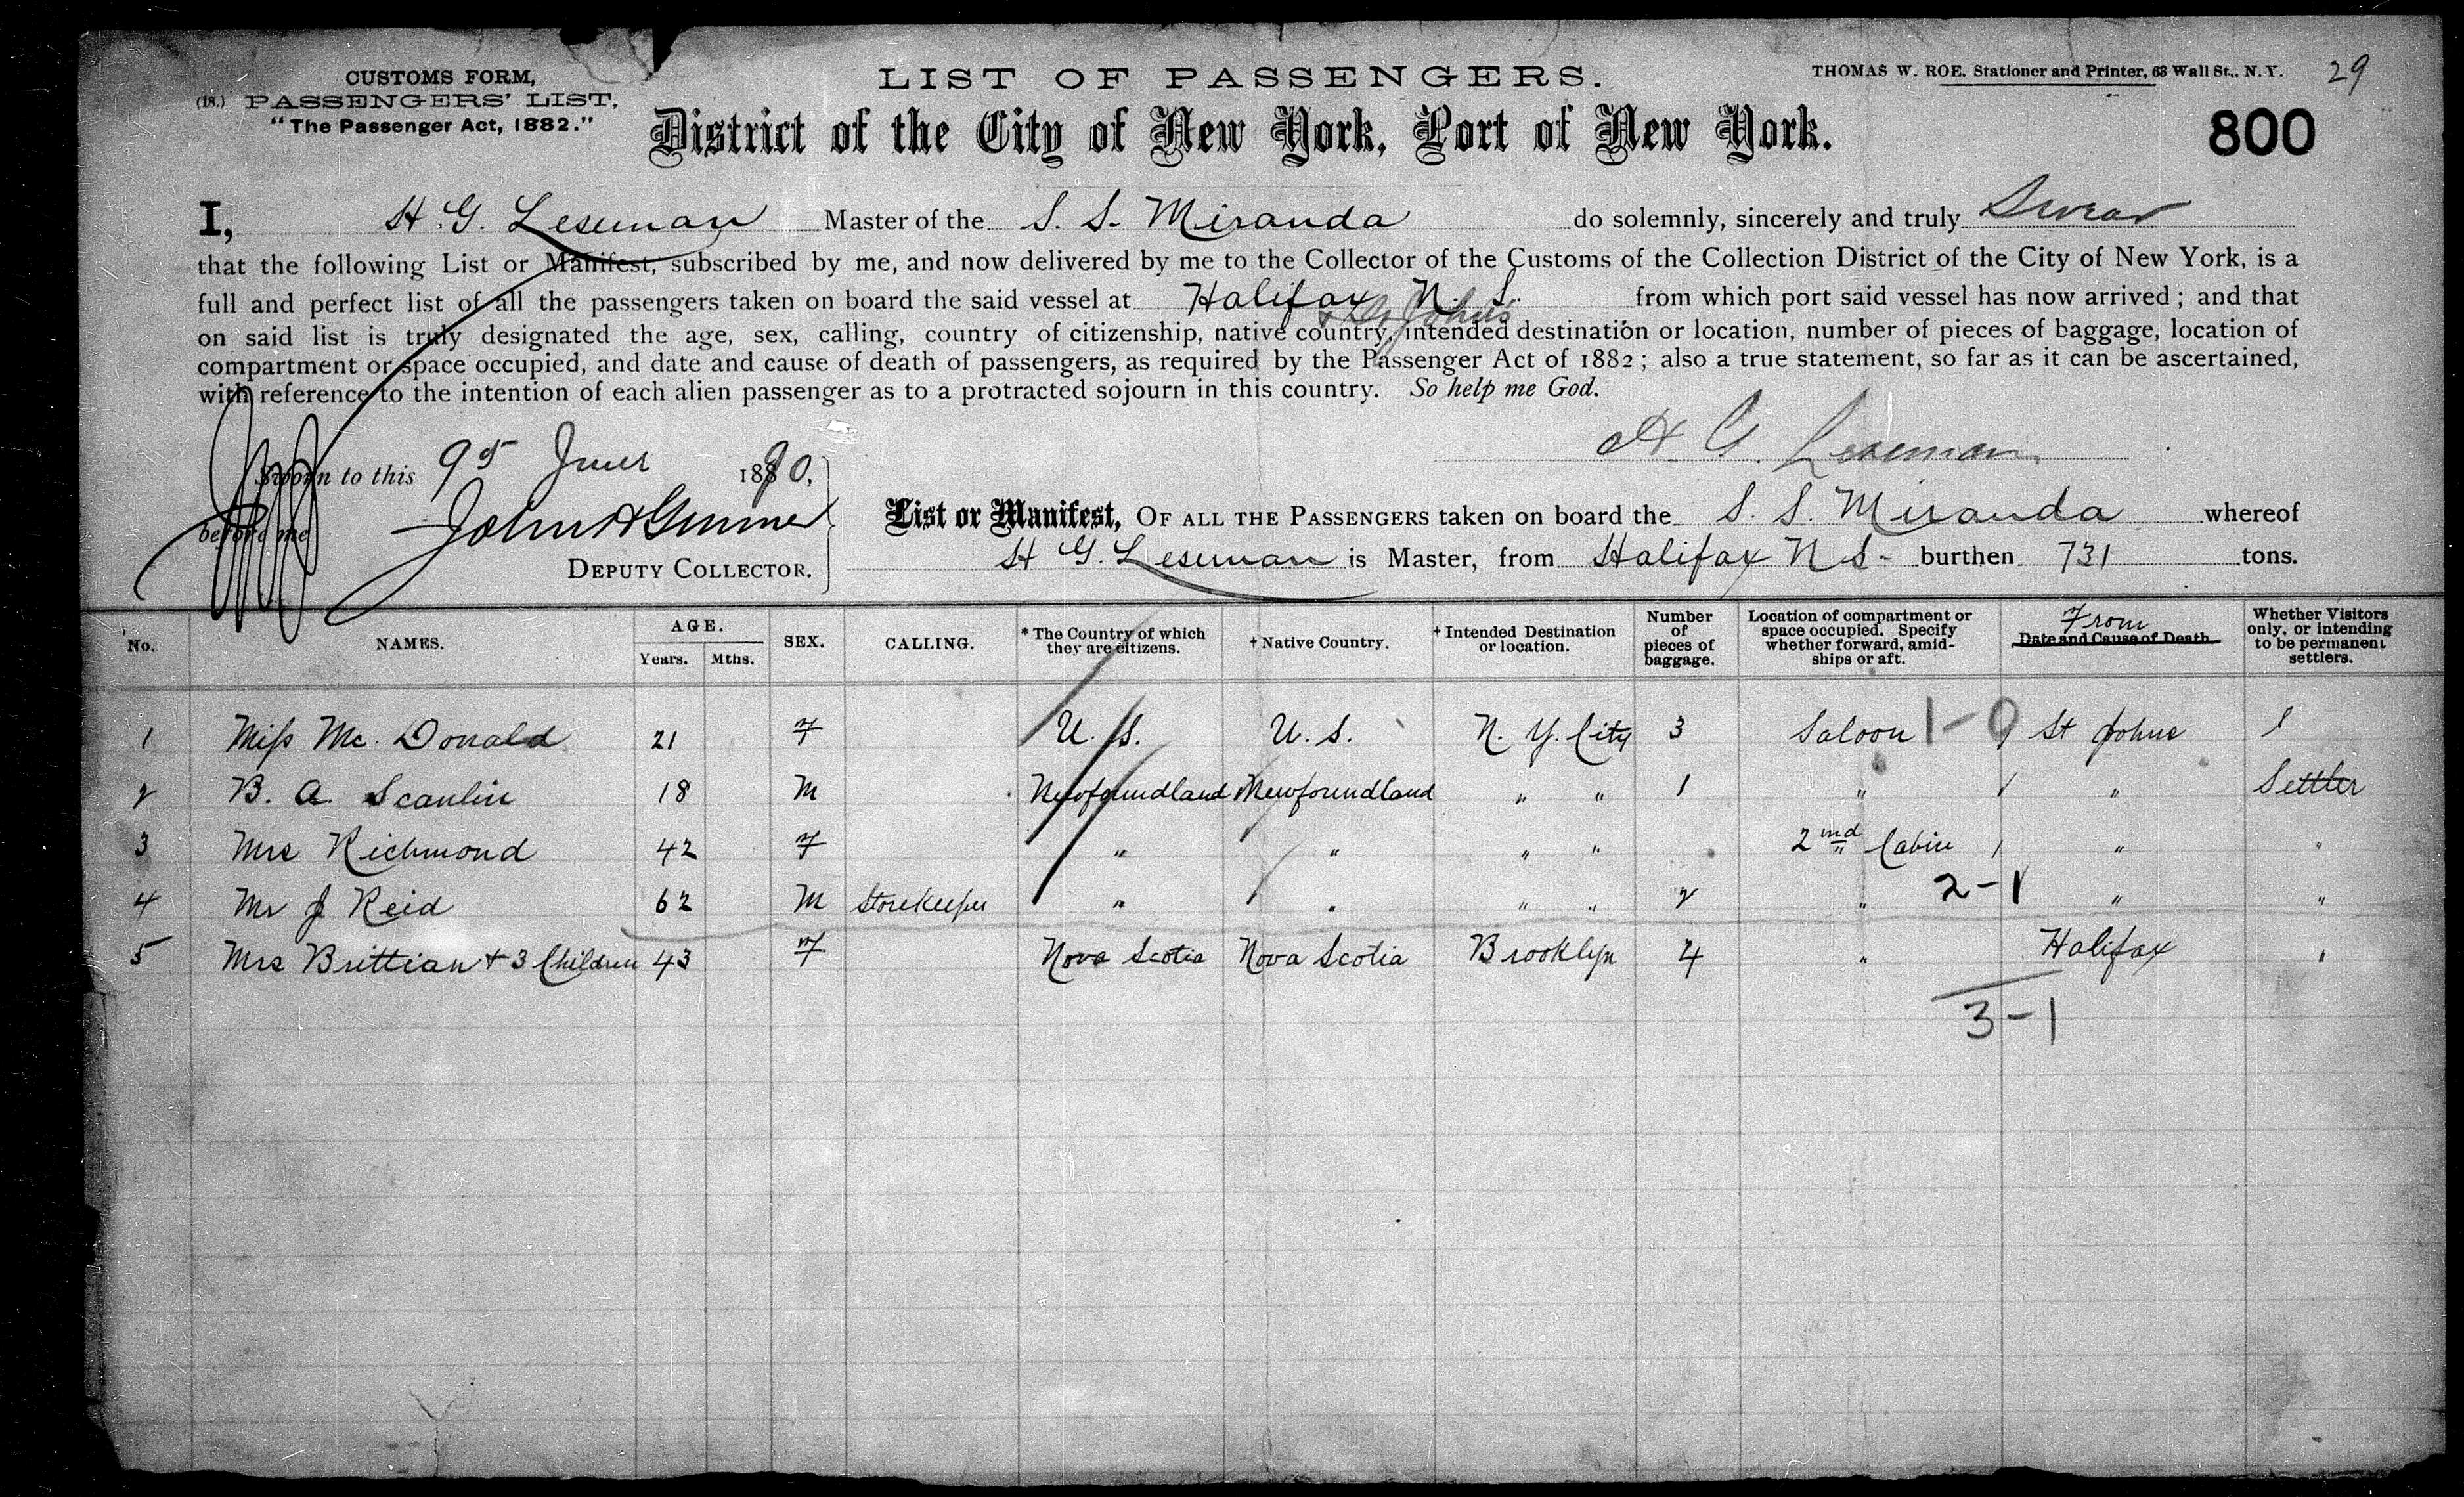 CUSTOMS FORM,
(18.) PASSENGERS' LIST,
"The Passenger Act, 1882."
LIST OF PASSENGERS.
THOMAS W. ROE, Stationer and Printer, 63 Wall St., N.Y.
29
District of the City of New York, Port of New York.
800
I, H. G. Leseman Master of the S. S. Miranda do solemnly, sincerely and truly Swear
that the following List or Manifest, subscribed by me, and now delivered by me to the Collector of the Customs of the Collection District of the City of New York, is a
full and perfect list of all the passengers taken on board the said vessel at Halifax N. S. from which port said vessel has now arrived; and that
& St Johns
on said list is truly designated the age, sex, calling, country of citizenship, native country, intended destination or location, number of pieces of baggage, location of
compartment or space occupied, and date and cause of death of passengers, as required by the Passenger Act of 1882; also a true statement, so far as it can be ascertained,
with reference to the intention of each alien passenger as to a protracted sojourn in this country. So help me God.
H. G. Leseman
Sworn to this 9 June 1890,
before me John
DEPUTY COLLECTOR.
List or Manifest, OF ALL THE PASSENGERS taken on board the S. S. Miranda whereof
H G. Leseman is Master, from Halifax N S- burthen 731 tons.
No. NAMES. AGE. Years. Mths. SEX. CALLING. * The Country of which they are citizens. † Native Country. † Intended Destination or location. Number of pieces of baggage. Location of compartment or space occupied. Specify whether forward, amidships or aft. From Date and Cause of Death Whether Visitors only, or intending to be permanent settlers.
1 Miss Mc. Donald 21 F U. S. U. S. N. Y. City 3 Saloon 1-0 St Johns
2 B. A. Scanlin 18 M Newfoundland Newfoundland " " 1 " " Settler
3 Mrs Richmond 42 F " " " " 2nd Cabin " "
4 Mr J Reid 62 M Storekeeper " " " " 2 " 2-1 " "
5 Mrs Brittian + 3 Children 43 F Nova Scotia Nova Scotia Brooklyn 4 " Halifax "
3-1